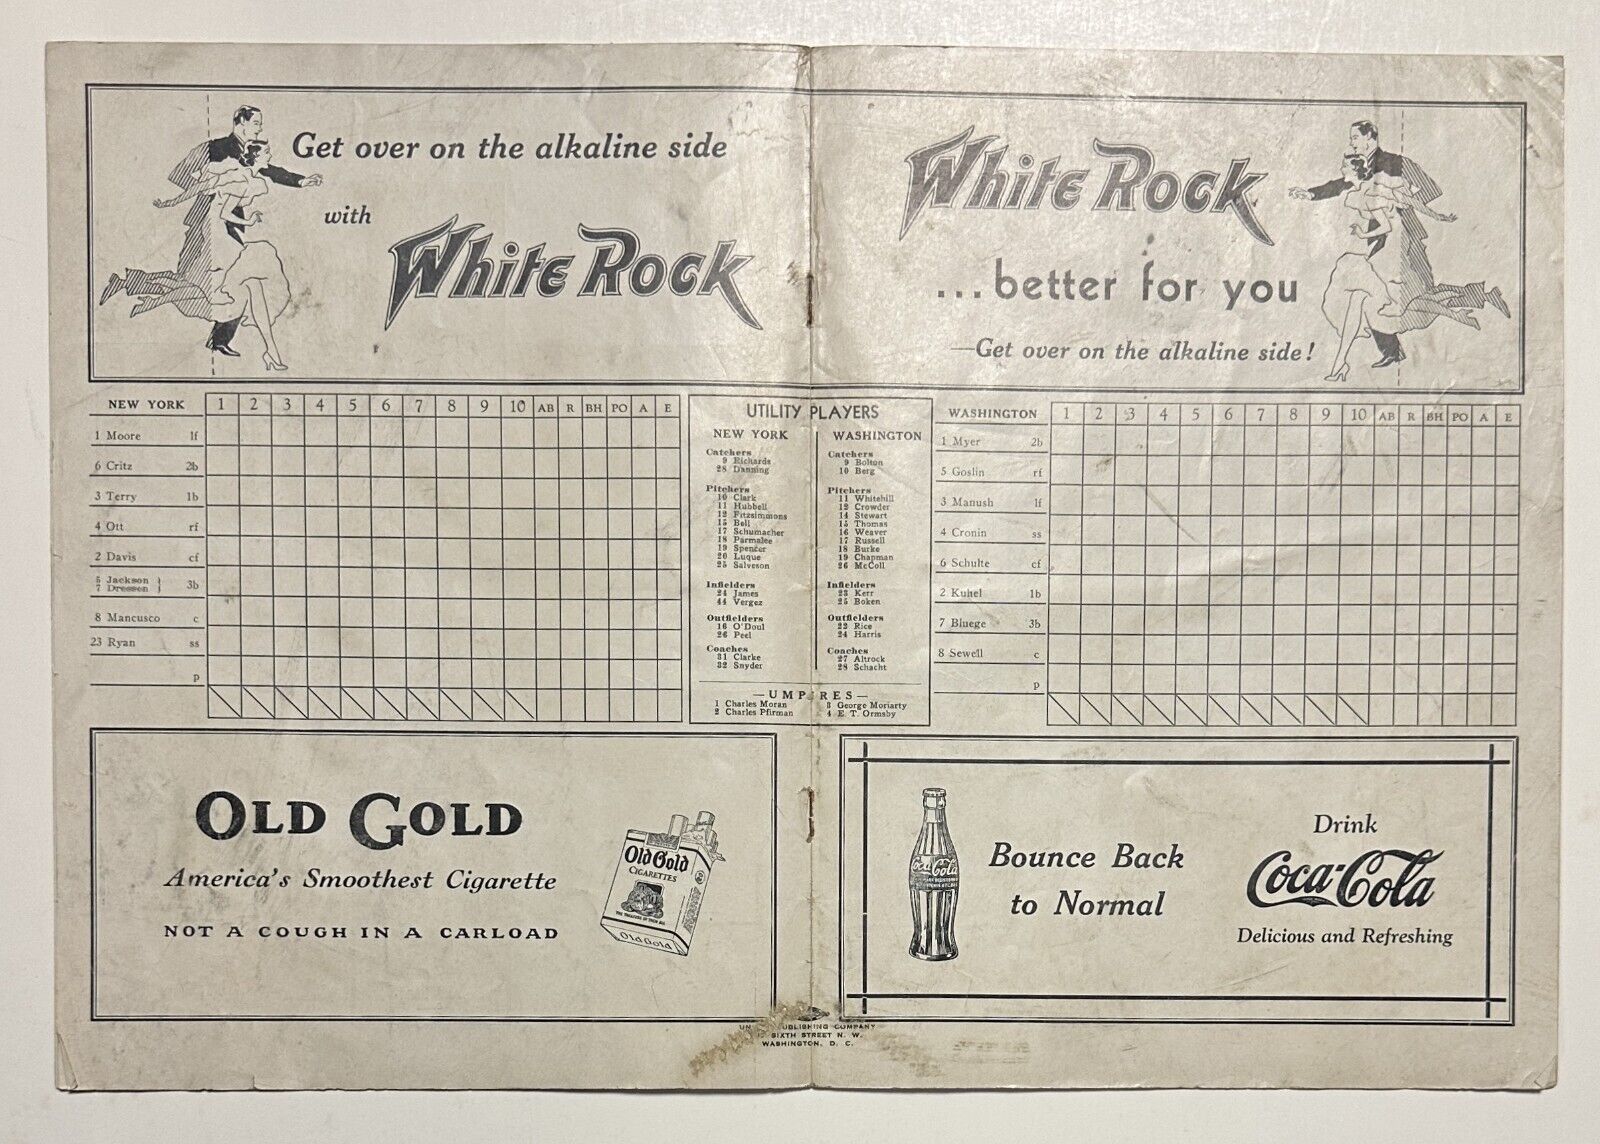 Get over on the alkaline side
with
White Rock
White Rock
...better for you
—Get over on the alkaline side!
NEW YORK 1 2 3 4 5 6 7 8 9 10 AB R BH PO A E
1 Moore lf
6 Critz 2b
3 Terry 1b
4 Ott rf
2 Davis cf
5 Jackson
7 Dressen 3b
8 Mancusco c
23 Ryan ss
p
UTILITY PLAYERS
NEW YORK
Catchers
9 Richards
28 Danning
Pitchers
10 Clark
11 Hubbell
12 Fitzsimmons
15 Bell
17 Schumacher
18 Parmalee
19 Spencer
20 Luque
25 Salveson
Infielders
24 James
44 Vergez
Outfielders
16 O'Doul
26 Peel
Coaches
31 Clarke
32 Snyder
WASHINGTON
Catchers
9 Bolton
10 Berg
Pitchers
11 Whitehill
12 Crowder
14 Stewart
15 Thomas
16 Weaver
17 Russell
18 Burke
19 Chapman
26 McColl
Infielders
23 Kerr
25 Boken
Outfielders
22 Rice
24 Harris
Coaches
27 Altrock
28 Schacht
—UMPIRES—
1 Charles Moran 3 George Moriarty
2 Charles Pfirman 4 E. T. Ormsby
WASHINGTON 1 2 3 4 5 6 7 8 9 10 AB R BH PO A E
1 Myer 2b
5 Goslin rf
3 Manush lf
4 Cronin ss
6 Schulte cf
2 Kuhel 1b
7 Bluege 3b
8 Sewell c
p
OLD GOLD
America's Smoothest Cigarette
NOT A COUGH IN A CARLOAD
Old Gold
CIGARETTES
THE TREASURE OF THEM ALL
Old Gold
Coca-Cola
Bounce Back
to Normal
Drink
Coca-Cola
Delicious and Refreshing
PUBLISHING COMPANY
SIXTH STREET N. W.
WASHINGTON, D. C.